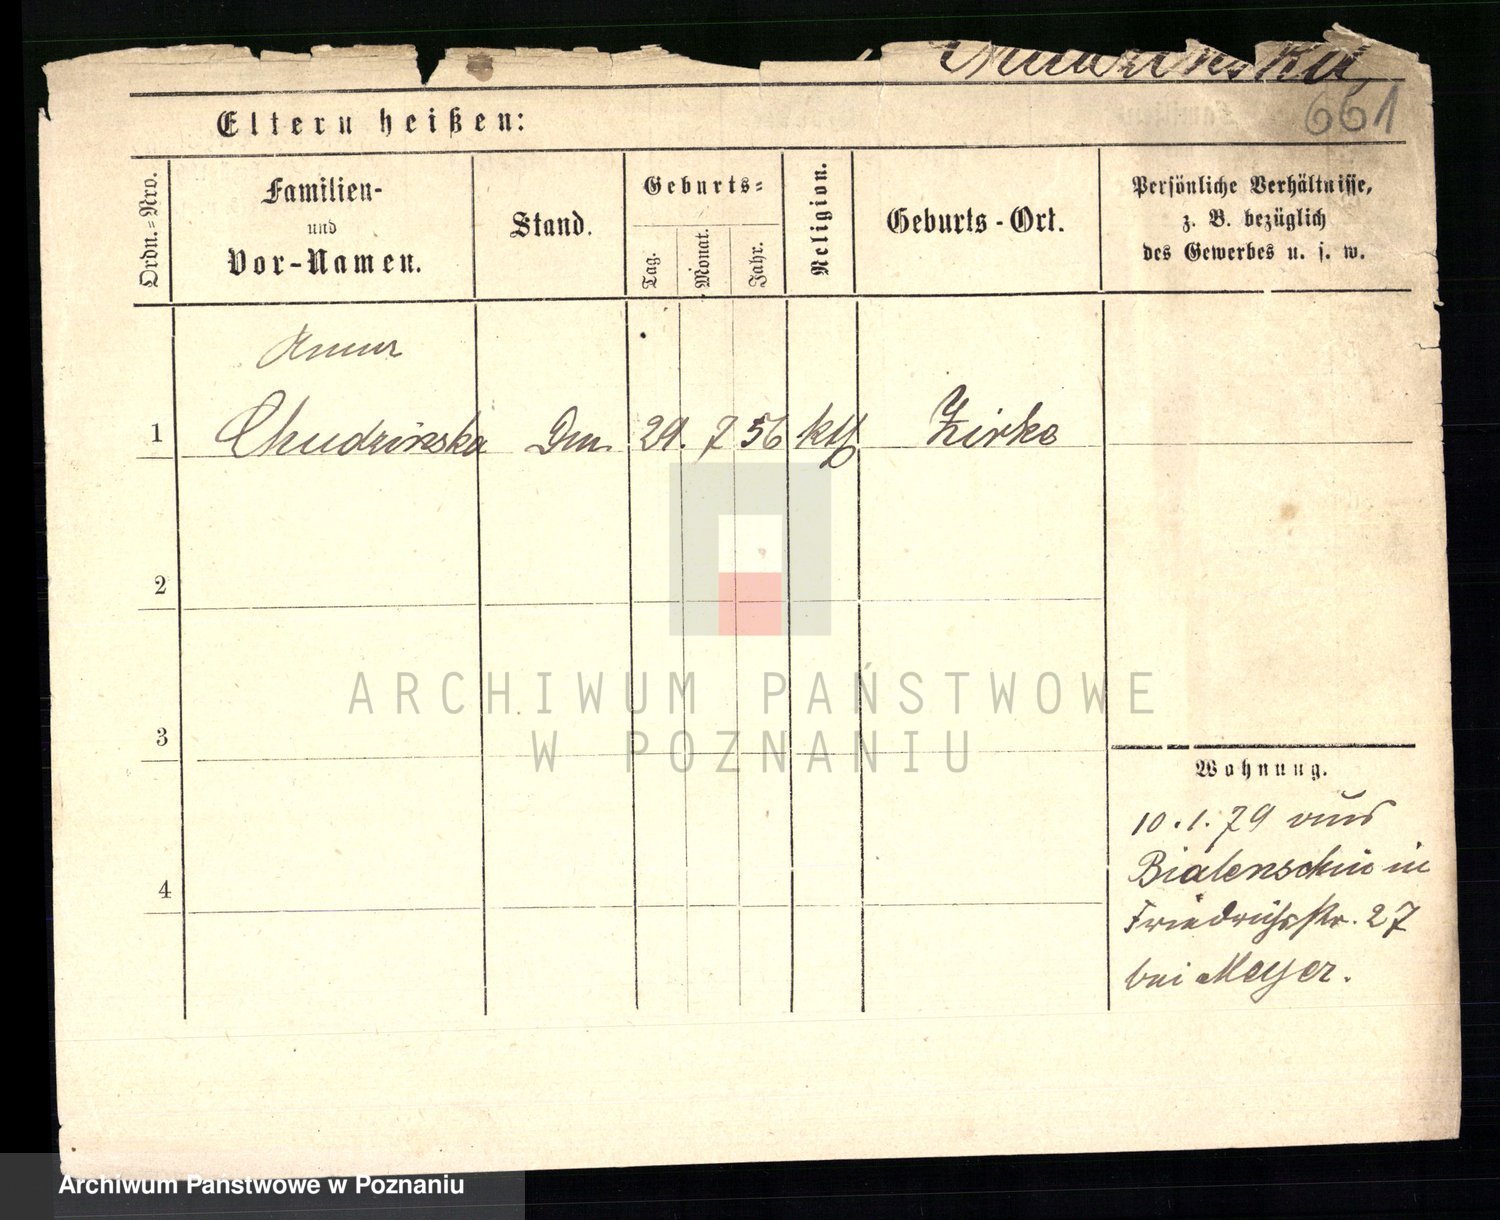 Chudzinska
661
Eltern heißen:
Ordn.=Nro.
Familien-
und
Vor-Namen.
Stand.
Geburts=
Tag.
Monat.
Jahr.
Religion.
Geburts-Ort.
Persönliche Verhältnisse,
z. B. bezüglich
des Gewerbes u. s. w.
Anna
1 Chudzinska Dm. 29. 7 56 kth Zirke
2
3
4
Wohnung.
10.1.79 aus
Bialenschin in
Friedrichsstr. 27
bei Meyer.
ARCHIWUM PAŃSTWOWE
W POZNANIU
Archiwum Państwowe w Poznaniu